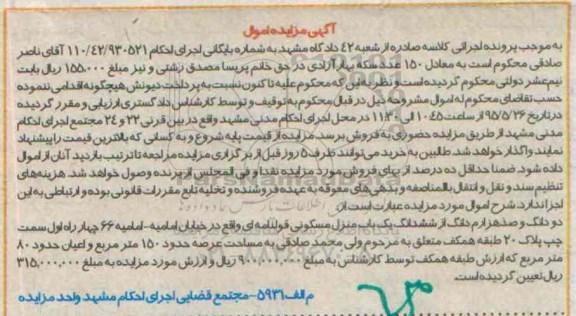 آگهی مزایده اموال
به موجب پرونده اجرائی کلاسه صادره از شعبه ۴۲ دادگاه مشهد به شماره بایگانی اجرای احکام ۱۱۰/۴۲/۹۳۰۵۲۱ آقای ناصر
صادقی محکوم است به معادل ۱۵۰ عدد سکه بهار آزادی در حق خانم پریسا مصدق رشتی و نیز مبلغ ۱۵۵،۰۰۰ ریال بابت
نیم عشر دولتی محکوم گردیده است و نظر به این که محکوم علیه تا کنون نسبت به پرداخت دیونش هیچگونه اقدامی ننموده
حسب تقاضای محکوم له اموال مشروحه ذیل در قبال محکوم به توقیف و توسط کارشناس دادگستری ارزیابی و مقرر گردیده
در تاریخ ۹۵/۵/۲۶ از ساعت ۱۰،۴۵ الی ۱۱،۳۰ در محل اجرای احکام مدنی مشهد واقع در بین قرنی ۲۲ و ۲۴ مجتمع اجرای احکام
مدنی مشهد از طریق مزایده حضوری به فروش برسد. مزایده از قیمت پایه شروع و به کسانی که بالاترین قیمت را پیشنهاد
نمایند واگذار خواهد شد. طالبین به خرید می توانند ظرف ۵ روز قبل از برگزاری مزایده مراجعه تا ترتیب بازدید آنان از اموال
داده شود. ضمنا حداقل ده درصد از بهای فروش مورد مزایده نقدا و فی المجلس از برنده وصول خواهد شد. هزینه های
تنظیم سند و نقل و انتقال بالمناصفه و بدهی های معوقه به عهده فروشنده و تخلیه تابع مقررات قانونی بوده و ارتباطی به این
اجرا ندارد. شرح اموال مورد مزایده عبارت است از:
دو دانگ و صدهزارم دانگ از ششدانگ یک باب منزل مسکونی قولنامه ای واقع در خیابان امامیه - امامیه ۶۶ چهارراه اول سمت
چپ پلاک ۲۰ طبقه همکف متعلق به مرحوم ولی محمد صادقی به مساحت عرصه حدود ۱۵۰ متر مربع و اعیان حدود ۸۰
متر مربع که ارزش طبقه همکف توسط کارشناس به مبلغ ۹۰۰،۰۰۰،۰۰۰ ریال و ارزش مورد مزایده به مبلغ ۳۱۵،۰۰۰،۰۰۰
ریال تعیین گردیده است.
م الف ۵۹۳۱ - مجتمع قضایی اجرای احکام مشهد واحد مزایده